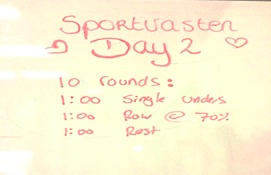 Sportvasten
Day 2
10 rounds:
1:00 Single unders
1:00 Row @ 70%
1:00 Rest